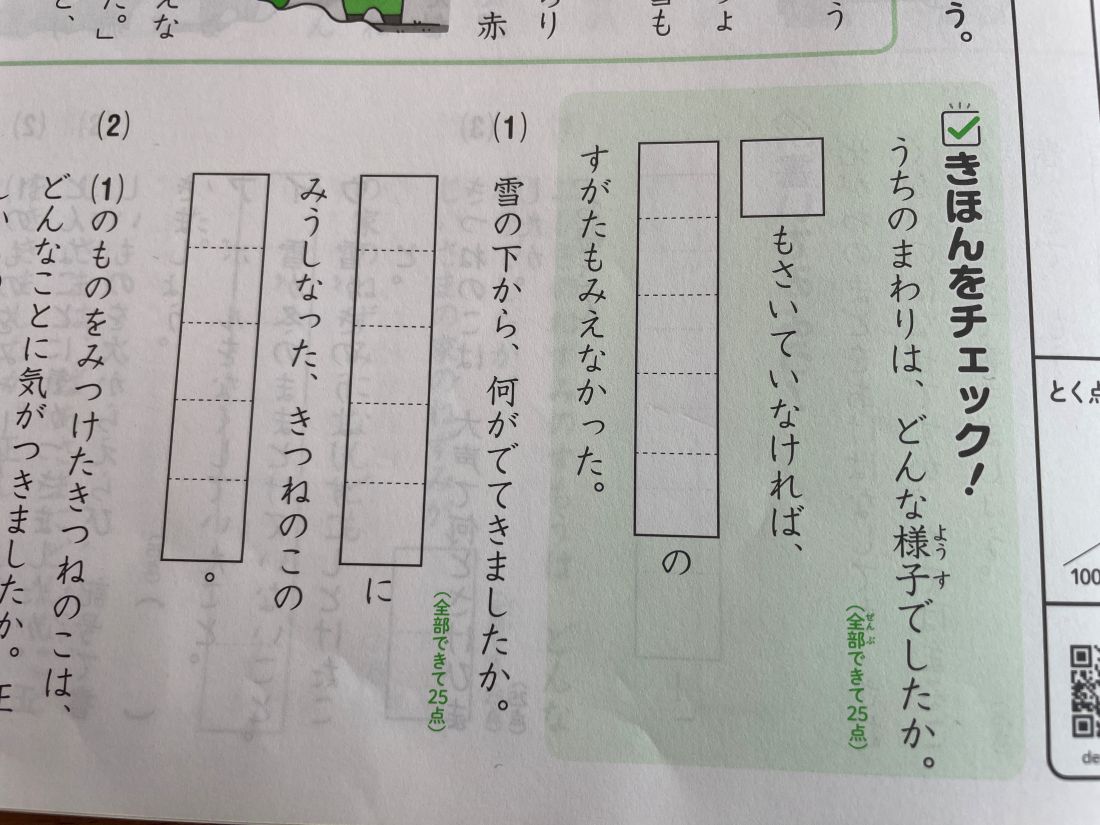 う。
う
赤
きほんをチェック!
うちのまわりは、どんな様子でしたか。
ようす
(全部できて25点)
ぜんぶ
もさいていなければ、
の
すがたもみえなかった。
(1) 雪の下から、何がでてきましたか。
(全部できて25点)
に
みうしなった、きつねのこの
。
(2) (1)のものをみつけたきつねのこは、
どんなことに気がつきましたか。
とく点
100